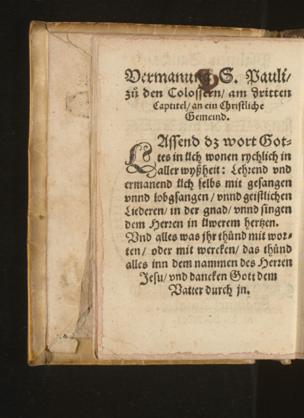 Vermanung S. Pauli/
zů den Colossern/ am dritten
Capittel/ an ein Christliche
Gemeind.
LAssend dz wort Got-
tes in üch wonen rychlich in
aller wyßheit: Lehrend vnd
ermanend üch selbs mit gesangen
vnnd lobgsangen/ vnnd geistlichen
Liederen/ in der gnad/ vnnd singen
dem Herren in üwerem hertzen.
Vnd alles was jhr thůnd mit wor-
ten/ oder mit wercken/ das thůnd
alles inn dem nammen des Herren
Jesu/ vnd dancken Gott dem
Vatter durch jn.